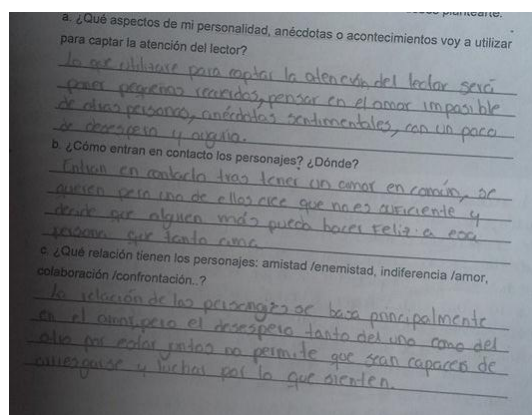 a. ¿Qué aspectos de mi personalidad, anécdotas o acontecimientos voy a utilizar
para captar la atención del lector?
lo que utilizare para captar la atención del lector será
poner pequeños recorridos, pensar en el amor imposible
de otras personas, anécdotas sentimentales, con un poco
de desespero y angutia.
b. ¿Cómo entran en contacto los personajes? ¿Dónde?
Entran en contacto tras tener un amor en común, se
quieren pero uno de ellos cree que no es suficiente y
decide que alguien más puede hacer feliz a esa
persona que tanto ama
c. ¿Qué relación tienen los personajes: amistad /enemistad, indiferencia /amor,
colaboración /confrontación..?
la relación de los personajes se basa principalmente
en el amor, pero el desespero tanto del uno como del
otro por estar juntos no permite que sean capaces de
arriesgarse y luchar por lo que sienten.